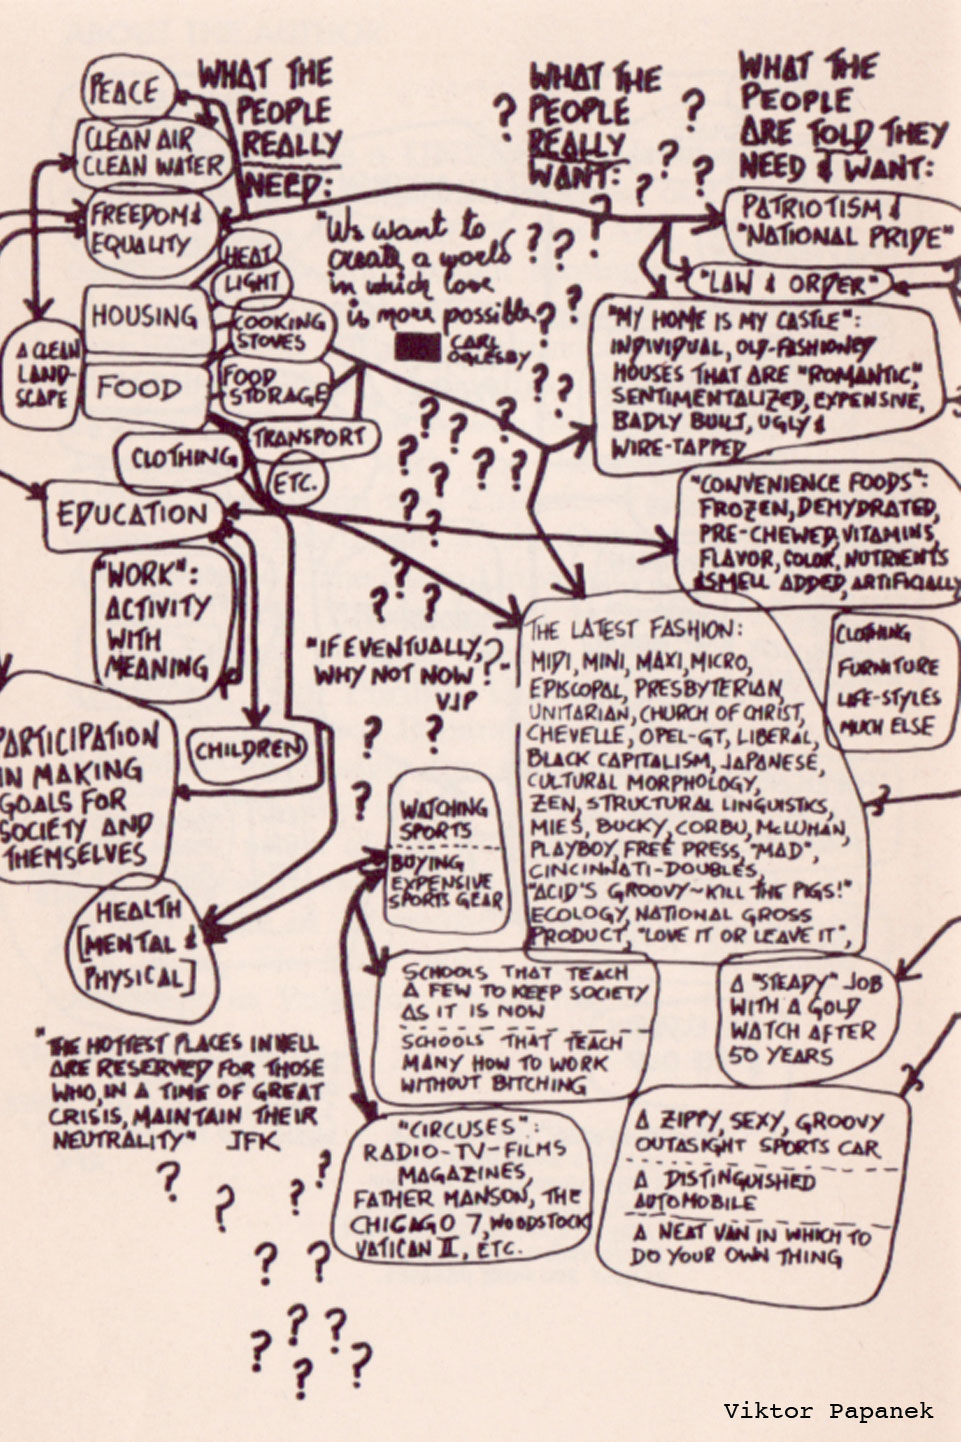 WHAT THE
PEOPLE
REALLY
NEED:
PEACE
CLEAN AIR
CLEAN WATER
FREEDOM &
EQUALITY
HEAT
LIGHT
HOUSING
COOKING
STOVES
A CLEAN
LAND-
SCAPE
FOOD
FOOD
STORAGE
TRANSPORT
CLOTHING
ETC.
EDUCATION
"WORK":
ACTIVITY
WITH
MEANING
CHILDREN
PARTICIPATION
IN MAKING
GOALS FOR
SOCIETY AND
THEMSELVES
HEALTH
[MENTAL &
PHYSICAL]
"THE HOTTEST PLACES IN HELL
ARE RESERVED FOR THOSE
WHO, IN A TIME OF GREAT
CRISIS, MAINTAIN THEIR
NEUTRALITY" JFK
? ? ? ?
? ?
? ?
? ? ?
WHAT THE
? PEOPLE ?
REALLY ?
WANT: ? ?
?
? ? ?
?
?
? ?
"We want to
create a world
in which love
is more possible
CARL
OGLESBY
? ?
? ? ?
? ?
? ?
?
? ?
"IF EVENTUALLY,
WHY NOT NOW?"
VJP
? ?
?
WATCHING
SPORTS
BUYING
EXPENSIVE
SPORTS GEAR
SCHOOLS THAT TEACH
A FEW TO KEEP SOCIETY
AS IT IS NOW
SCHOOLS THAT TEACH
MANY HOW TO WORK
WITHOUT BITCHING
"CIRCUSES":
RADIO-TV-FILMS
MAGAZINES,
FATHER MANSON, THE
CHICAGO 7, WOODSTOCK
VATICAN II, ETC.
WHAT THE
PEOPLE
ARE TOLD THEY
NEED & WANT:
PATRIOTISM &
"NATIONAL PRIDE"
"LAW & ORDER"
"MY HOME IS MY CASTLE":
INDIVIDUAL, OLD-FASHIONED
HOUSES THAT ARE "ROMANTIC",
SENTIMENTALIZED, EXPENSIVE,
BADLY BUILT, UGLY &
WIRE-TAPPED...
"CONVENIENCE FOODS":
FROZEN, DEHYDRATED,
PRE-CHEWED, VITAMINS,
FLAVOR, COLOR, NUTRIENTS
&SMELL ADDED, ARTIFICIALLY
THE LATEST FASHION:
MIDI, MINI, MAXI, MICRO,
EPISCOPAL, PRESBYTERIAN,
UNITARIAN, CHURCH OF CHRIST,
CHEVELLE, OPEL-GT, LIBERAL,
BLACK CAPITALISM, JAPANESE,
CULTURAL MORPHOLOGY,
ZEN, STRUCTURAL LINGUISTICS,
MIES, BUCKY, CORBU, McLUHAN,
PLAYBOY, FREE PRESS, "MAD",
CINCINNATI-DOUBLES,
"ACID'S GROOVY~KILL THE PIGS!"
ECOLOGY, NATIONAL GROSS
PRODUCT, "LOVE IT OR LEAVE IT",
CLOTHING
FURNITURE
LIFE-STYLES
MUCH ELSE
A "STEADY" JOB
WITH A GOLD
WATCH AFTER
50 YEARS
A ZIPPY, SEXY, GROOVY
OUTASIGHT SPORTS CAR
A DISTINGUISHED
AUTOMOBILE
A NEAT VAN IN WHICH TO
DO YOUR OWN THING
Viktor Papanek